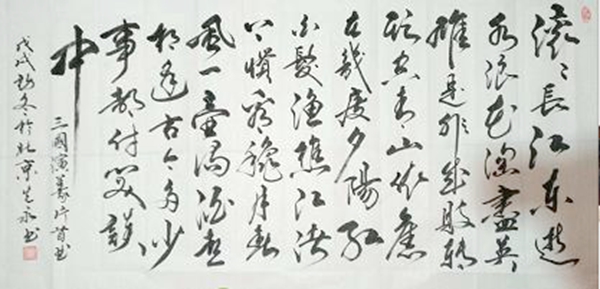 滚〻長江東逝
水浪花淘盡英
雄是非成敗轉
頭空青山依舊
在幾度夕陽紅
白髮漁樵江渚
上慣看秋月春
風一壺濁酒喜
相逢古今多少
事都付笑談
中
三國演義片首曲
戊戌初冬於北京永書